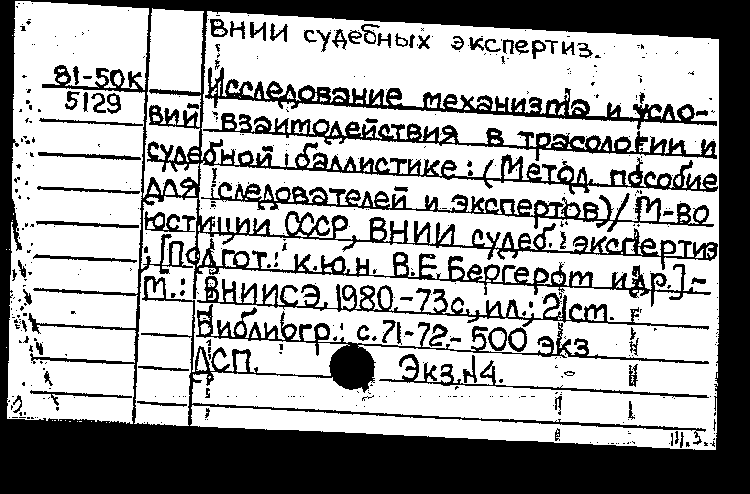 ВНИИ судебных экспертиз.
81-50К
5129
Исследование механизма и усло-
вий взаимодействия в трасологии и
судебной баллистике: (Метод. пособие
для следователей и экспертов) / М-во
юстиции СССР, ВНИИ судеб. экспертиз
; [Подгот.: к.ю.н. В.Е.Бергером и др.].-
М.: ВНИИСЭ, 1980.-73с., ил.; 21см.
Библиогр.: с.71-72.- 500 экз
ДСП. Экз.N4.
Ш.З.